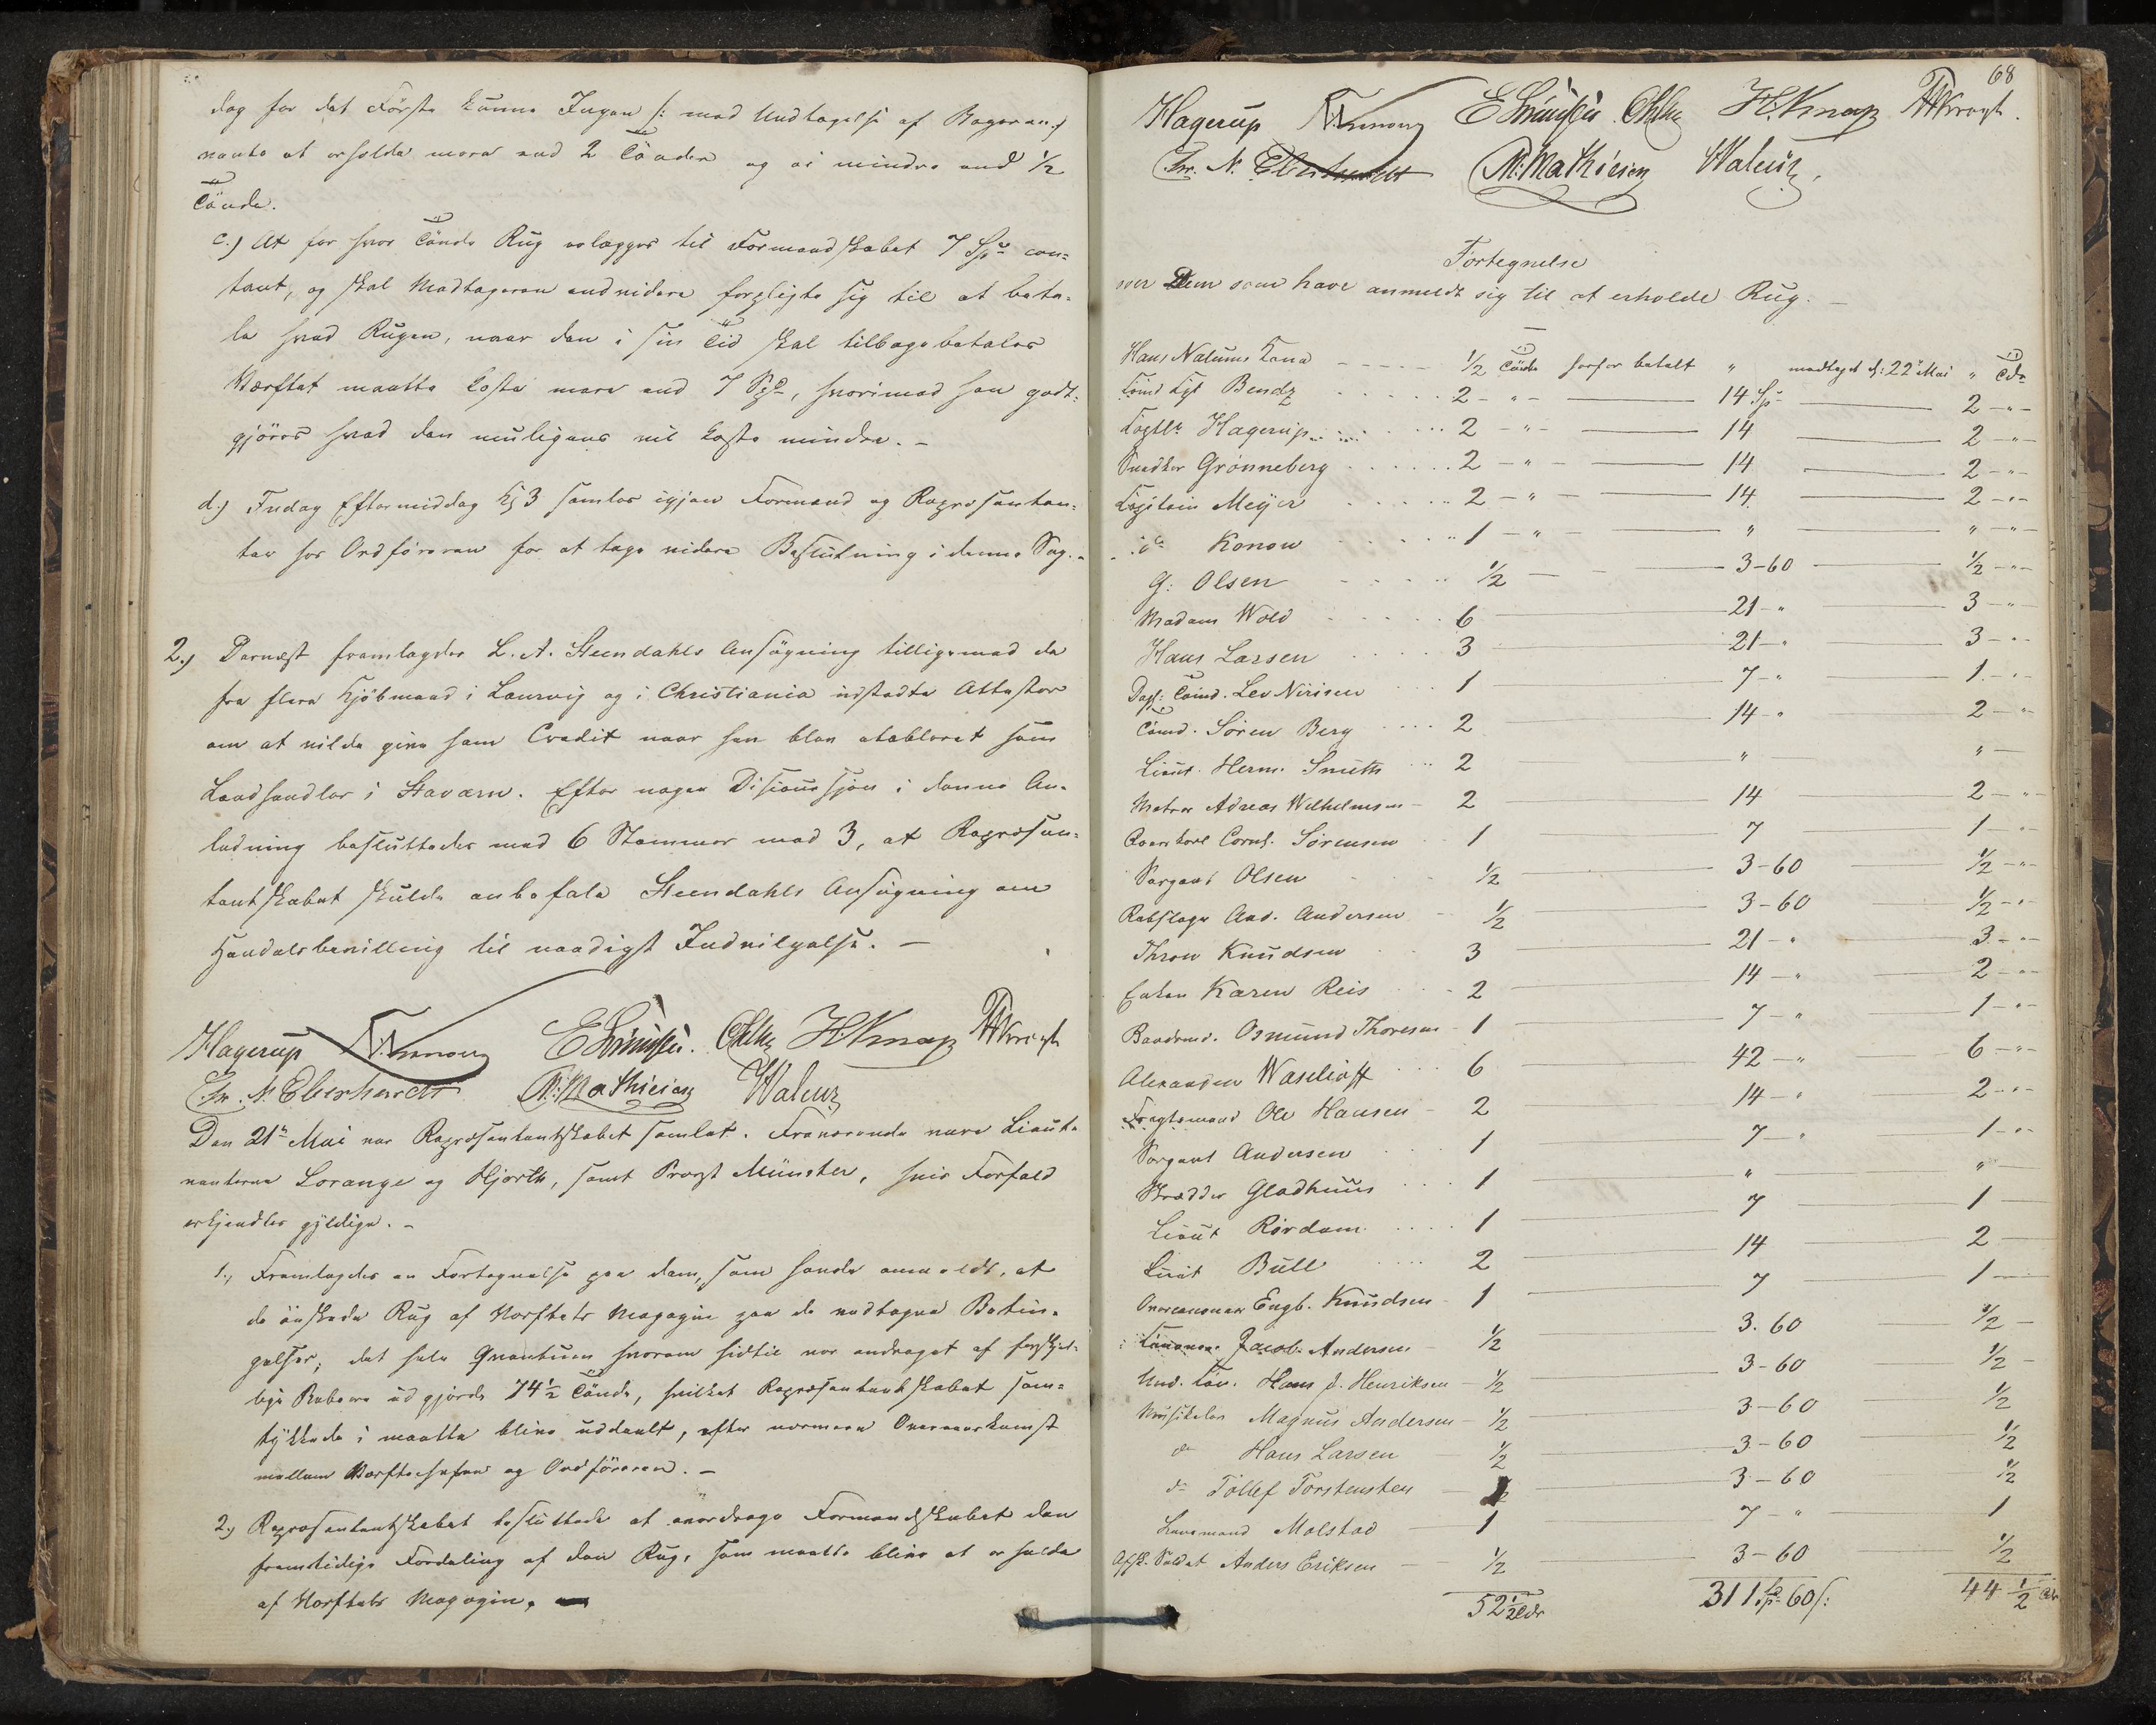 dog for det Første kunne Ingen /: med Undtagelse af Bageren :/
vente at erholde mere end 2 Tønder og ei mindre end 1/2
Tønde.
c.) At for hver Tønde Rug erlægges til Formandskabet 7 Spd con-
tant, og skal Modtageren endvidere forpligte sig til at beta-
le hvad Rugen, naar den i sin Tid skal tilbagebetales
Værftet maatte koste mere end 7 Spd, hvorimod han godt-
gjøres hvad den muligens vil koste mindre. –
d.) Fredag Eftermiddag Kl 3 samles igjen Formænd og Repræsentan-
ter hos Ordføreren for at tage videre Beslutning i denne Sag. –
2.) Dernæst fremlagdes L. A. Steendahls Ansøgning tilligemed de
fra flere Kjøbmænd i Laurvig og i Christiania udstedte Attester
om at vilde give ham Credit naar han blev etableret som
Landhandler i Staværn. Efter nogen Discussjon i denne An-
ledning besluttedes med 6 Stemmer mod 3, at Repræsen-
tantskabet skulde anbefale Steendahls Ansøgning om
Handelsbevilling til naadigst Indvilgelse. –
Hagerup H. Knap
Chr. N. Eberhardt M. Mathiesen
Den 21de Mai var Repræsentantskabet samlet. Fraværende vare Lieute-
nanterne Lorange og Hjorth, samt Provst Münster, hvis Forfald
erkjendtes gyldige. –
1., Fremlagdes en Fortegnelse paa dem, som havde anmeldt, at
de ønskede Rug af Værftets Magazin paa de vedtagne Betin-
gelser; det hele Qvantum hvorom hidtil var andraget af forskjel-
lige Beboere udgjorde 74 1/2 Tønde, hvilket Repræsentantskabet sam-
tykkede i maatte blive uddeelt, efter nærmere Overenskomst
mellem Værftschefen og Ordføreren. –
2.) Repræsentantskabet besluttede at overdrage Formandskabet den
fremtidige Fordeling af den Rug, som maatte blive at erholde
af Værftets Magazin.
68
Hagerup H. Knap
Chr. N. Eberhardt M. Mathiesen
Fortegnelse
over Dem som have anmeldt sig til at erholde Rug. –
Hans Natvius Lana 1/2 Tønde herfor betalt " modtaget d: 22de Mai " Tdr
Bendz 2 - " - 14 Sp 2 - " -
Hagerup 2 - " - 14 2 - " -
Snedker Grønneberg 2 - " - 14 2 - " -
Capitain Meyer 2 - " - 14 2 - " -
do Konow 1 - " - " " - " -
G. Olsen 1/2 3-60 1/2 - " -
Madam Wold 6 21 - " 3 - " -
Hans Larsen 3 21 - " 3 - " -
Lev Nirisen 1 7 - " 1 - " -
Søren Berg 2 14 - " 2 - " -
Lieut. Herm. Smith 2 " " -
Matros Adreas Wilhelmsen 2 14 2 - " -
Corns. Sørensen 1 7 1 - " -
Sergeant Olsen 1/2 3-60 1/2 - " -
Rebslager And. Andersen 1/2 3-60 1/2 - " -
Thron Knudsen 3 21 - " 3 - " -
Enken Karen Reis 2 14 - " 2 - " -
Osmund Thoresen 1 7 - " 1 - " -
Alexander Waselioff 6 42 - " 6 - " -
Fragtemand Ole Hansen 2 14 - " 2 - " -
Sergeant Andersen 1 7 - " 1 - " -
Skrædder Gladhuus 1 " " -
Lieut Rørdam 1 7 1 -
Lieut Bull 2 14 2 -
Engb. Knudsen 1 7 1 -
Jacob Andersen 1/2 3.60 1/2 -
Und. Can. Hans J. Henriksen 1/2 3-60 1/2 -
Musikeler Magnus Andersen 1/2 3-60 1/2
do Hans Larsen 1/2 3-60 1/2
do Tollef Torstensten 1/2 3-60 1/2
Lensmand Molstad 1 7 - " 1
Afsk. Soldat Anders Eriksen 1/2 3-60 1/2
52 1/2 Tdr 311 Sp 60 s: 44 1/2 Tdr